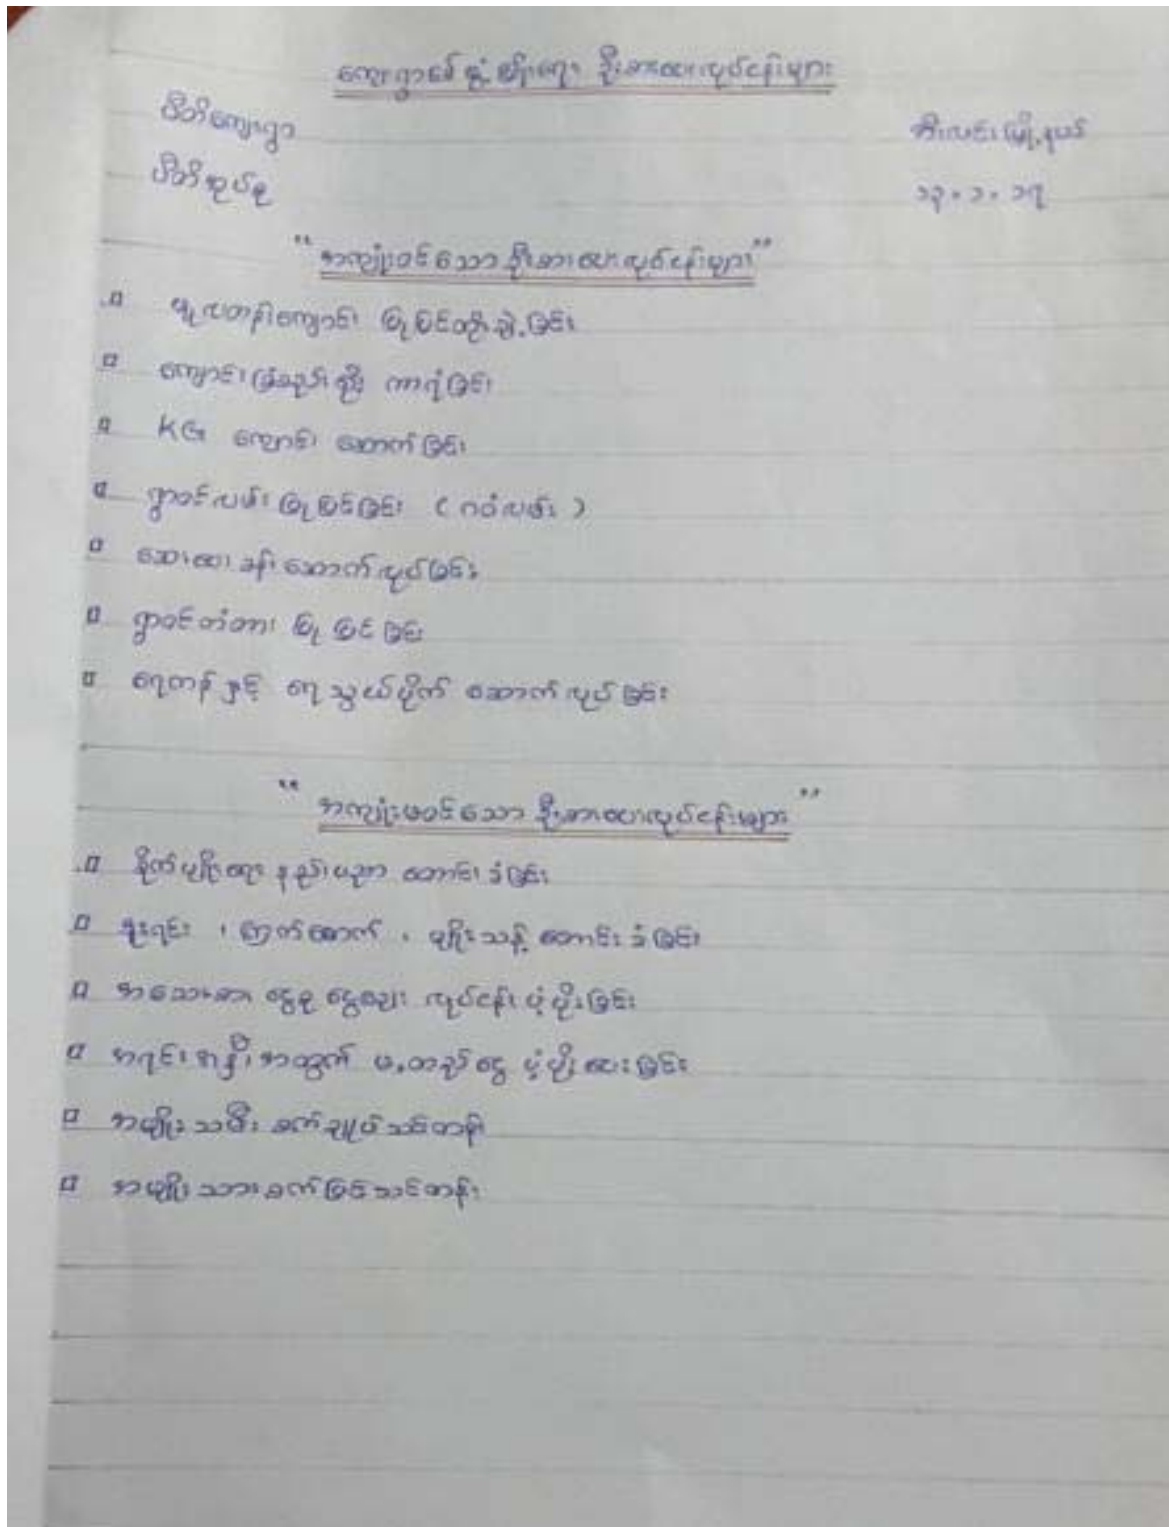 ကျေးရွာဖော် ဖွံ့ဖြိုးရေး ဦးစားပေးလုပ်ငန်းများ
ပီတိကျေးရွာ
ဘီးလင်းမြို့နယ်
ပီတိအုပ်စု
၁၃.၁.၁၇
"အကျုံးဝင်သော ဦးစားပေးလုပ်ငန်းများ"
မူလတန်းကျောင်း ပြုပြင်တိုးချဲ့ခြင်း
ကျောင်းခြံစည်းရိုး ကာရံခြင်း
KG ကျောင်း ဆောက်ခြင်း
ရွာဝင်လမ်း ပြုပြင်ခြင်း ( ဂဝံလမ်း )
ဆေးပေးခန်း ဆောက်လုပ်ခြင်း
ရွာဝင်တံတား ပြုပြင်ခြင်း
ရေကန်နှင့် ရေသွယ်ပိုက် ဆောက်လုပ်ခြင်း
"အကျုံးမဝင်သော ဦးစားပေးလုပ်ငန်းများ"
စိုက်ပျိုးရေး နည်းပညာ တောင်းခံခြင်း
ဒူးရင်း ၊ ကြက်မောက် ၊ မျိုးသန့် တောင်းခံခြင်း
အသေးစား ငွေစု ငွေချေး လုပ်ငန်း ပံ့ပိုးခြင်း
အရင်းအနှီးအတွက် မ,တည်ငွေ ပံ့ပိုးပေးခြင်း
အမျိုးသမီး စက်ချုပ်သင်တန်း
အမျိုးသား စက်ပြင်သင်တန်း